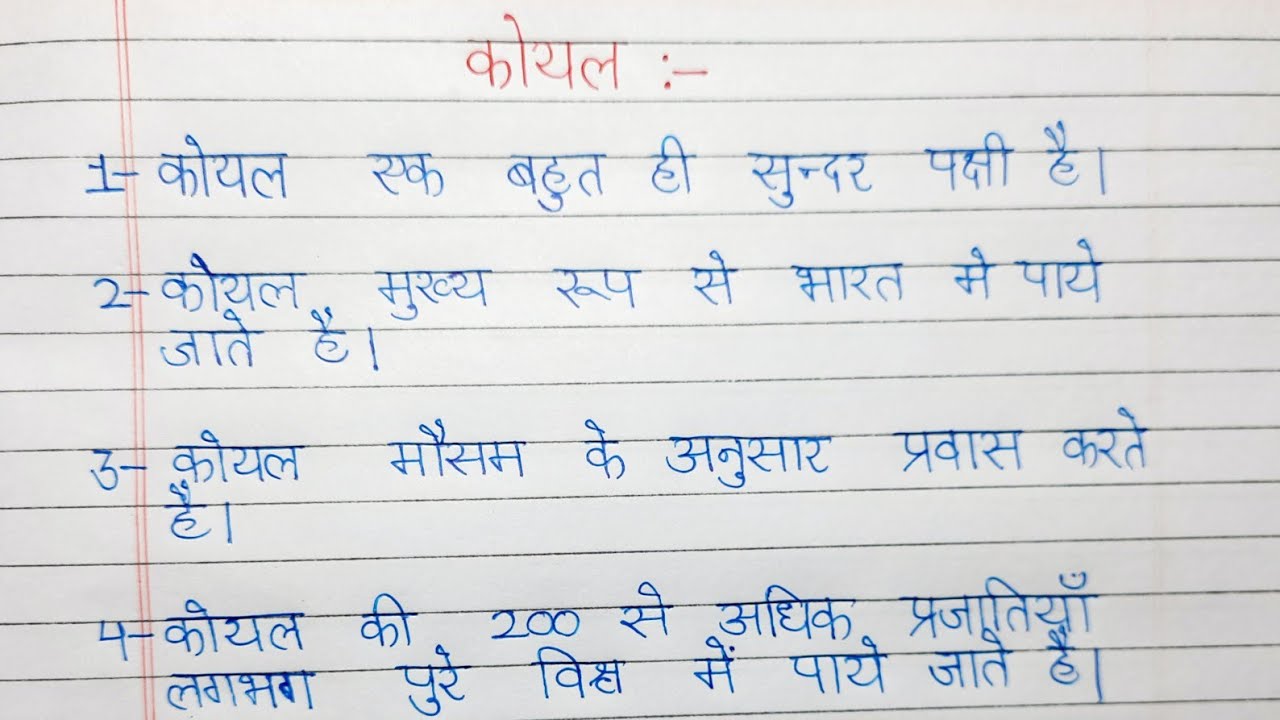 कोयल :-
1- कोयल एक बहुत ही सुन्दर पक्षी है।
2- कोयल मुख्य रूप से भारत मे पाये
जाते हैं।
3- कोयल मौसम के अनुसार प्रवास करते
हैं।
4- कोयल की 200 से अधिक प्रजातियाँ
लगभग पुरे विश्व में पाये जाते हैं।